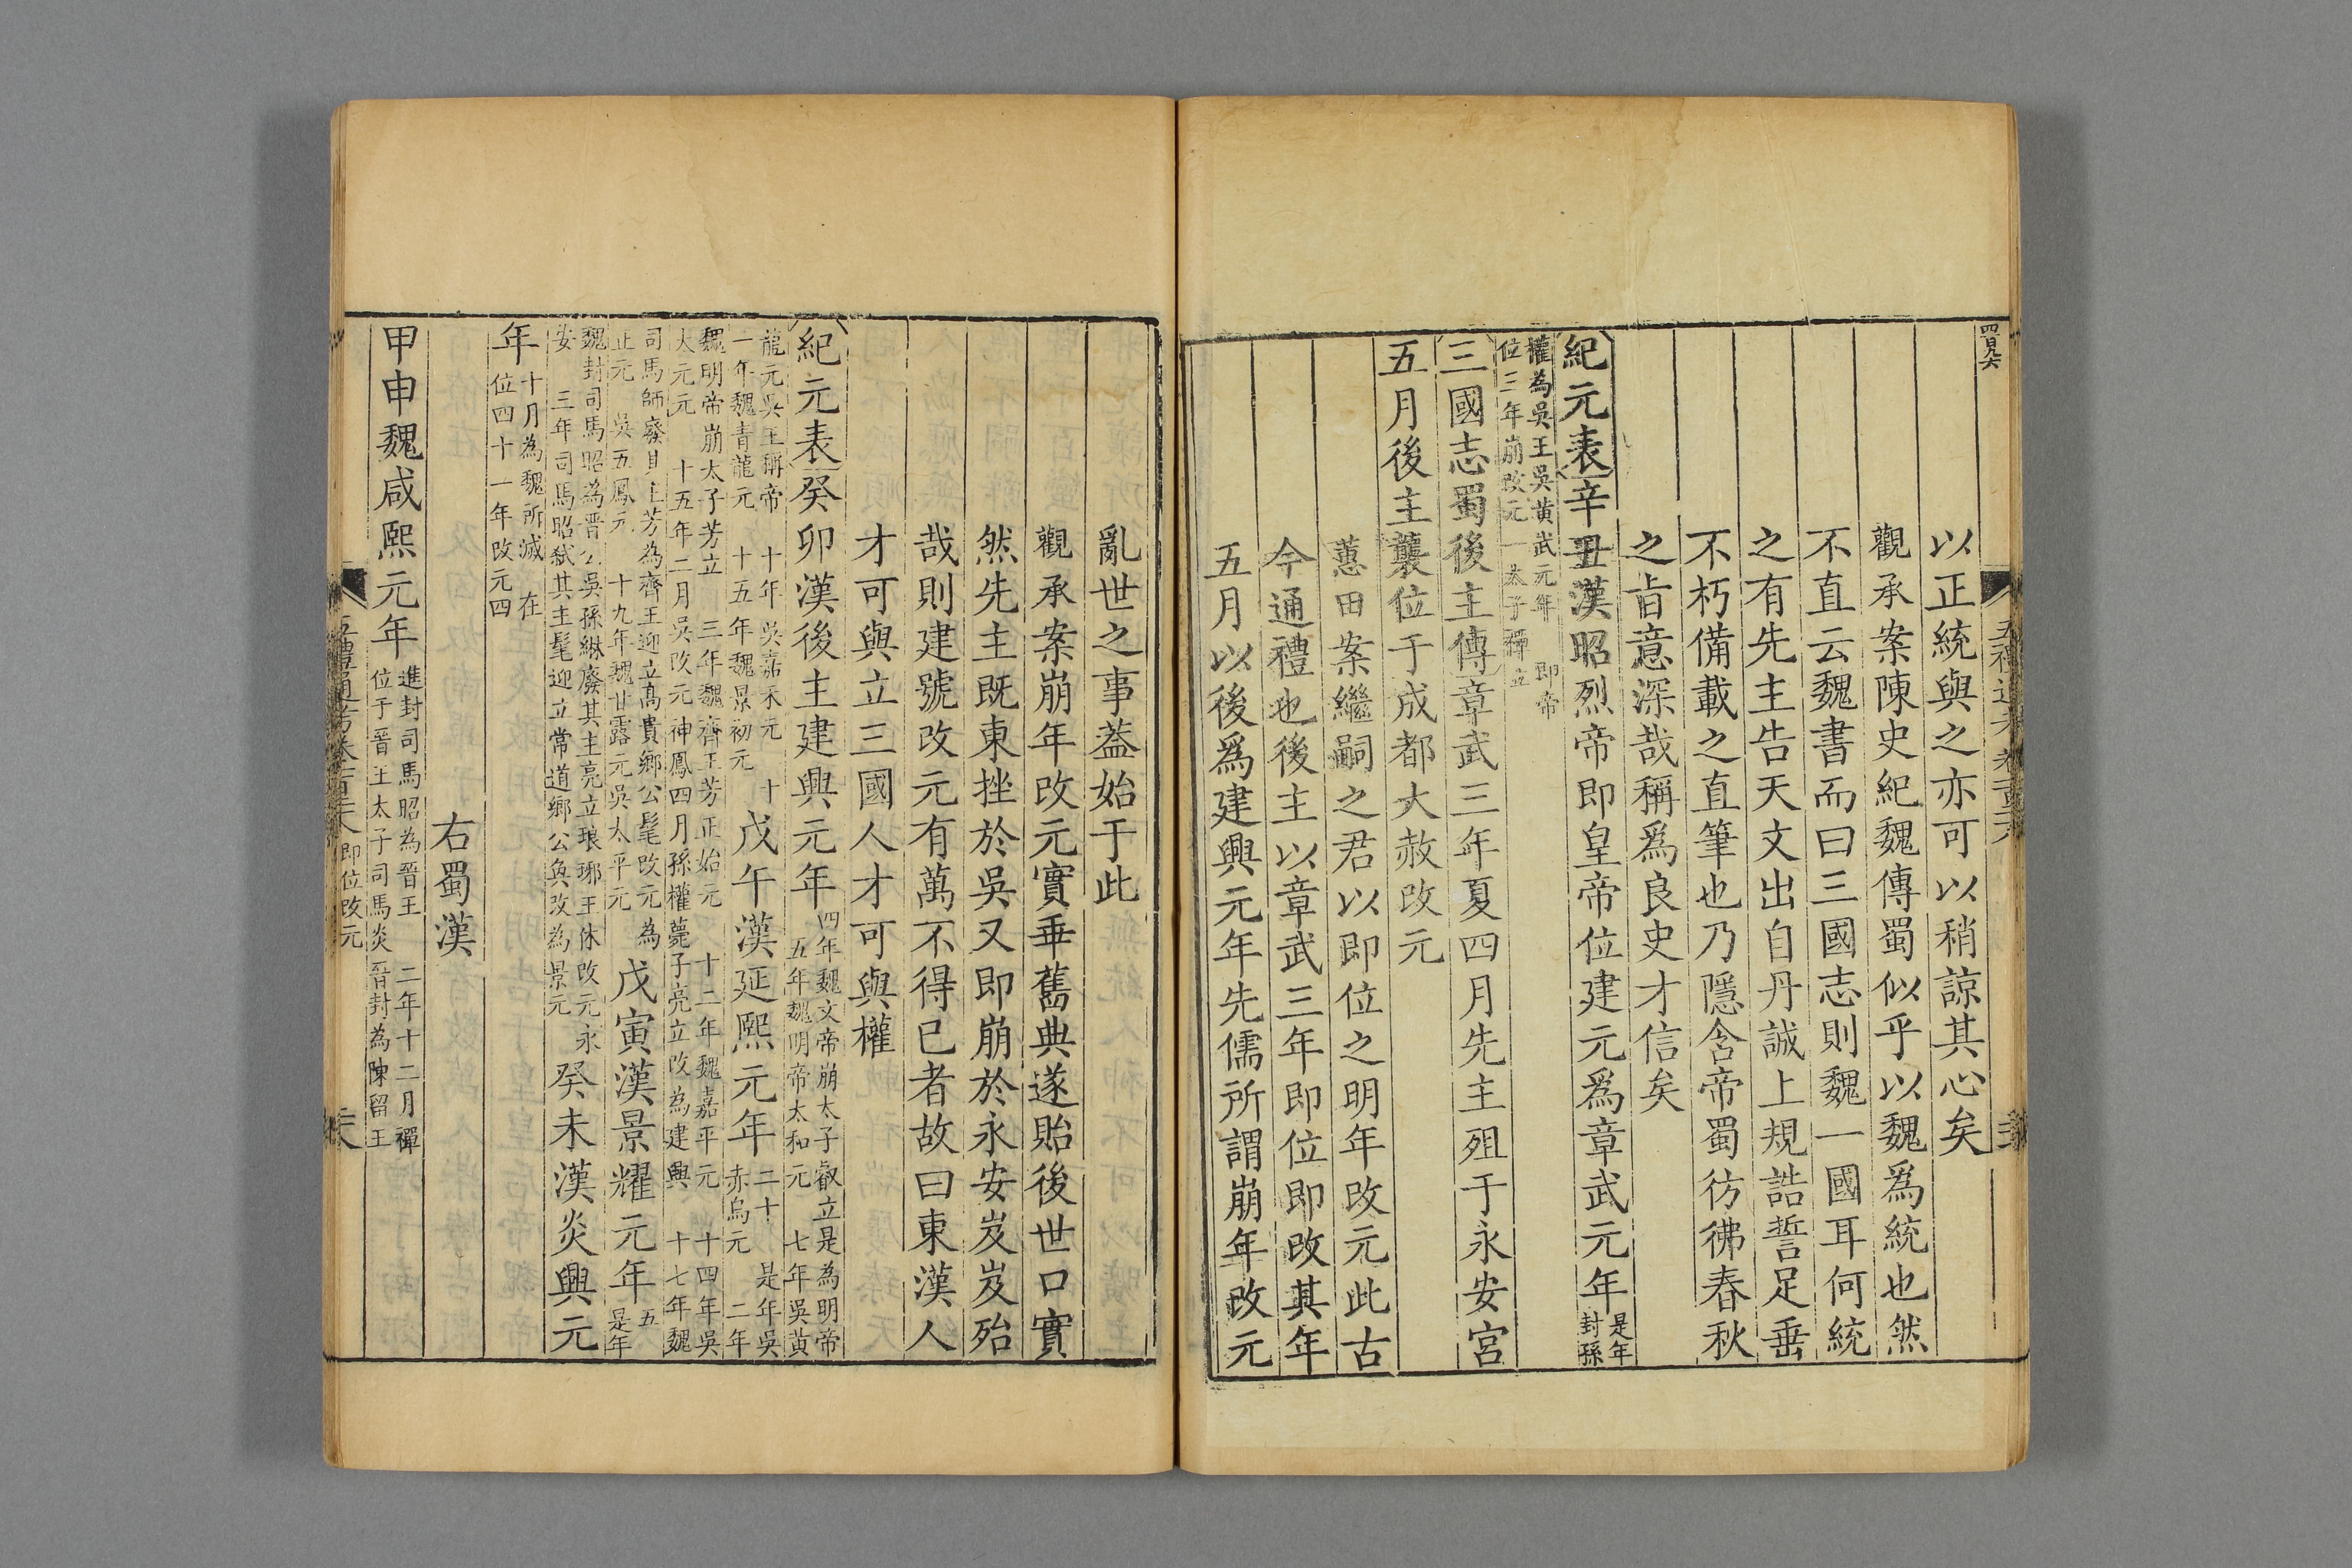 以正統與之亦可以稍諒其心矣
觀承案陳史紀魏傳蜀似乎以魏爲統也然
不直云魏書而曰三國志則魏一國耳何統
之有先主告天文出自丹誠上規誥誓足垂
不朽備載之直筆也乃隱含帝蜀彷彿春秋
之旨意深哉稱爲良史才信矣
紀元表辛丑漢昭烈帝即皇帝位建元爲章武元年是年封孫
權為吳王吳黃武元年 即帝
位三年崩改元 太子禪立
三國志蜀後主傳章武三年夏四月先主殂于永安宮
五月後主襲位于成都大赦改元
蕙田案繼嗣之君以即位之明年改元此古
今通禮也後主以章武三年即位即改其年
五月以後爲建興元年先儒所謂崩年改元
亂世之事葢始于此
觀承案崩年改元實乖舊典遂貽後世口實
然先主既東挫於吳又即崩於永安岌岌殆
哉則建號改元有萬不得已者故曰東漢人
才可與立三國人才可與權
紀元表癸卯漢後主建興元年四年魏文帝崩太子叡立是為明帝
五年魏明帝太和元 七年吳黃
龍元吳王稱帝 十年吳嘉禾元 十
一年魏青龍元 十五年魏景初元
戊午漢延熙元年二十 是年吳
赤烏元 二年
魏明帝崩太子芳立 三年魏齊王芳正始元 十二年魏嘉平元 十四年吳
太元元 十五年二月吳改元神鳳四月孫權薨子亮立改為建興 十七年魏
司馬師廢其主芳為齊王迎立高貴鄉公髦改元為
正元 吳五鳳元 十九年魏甘露元吳太平元
戊寅漢景耀元年五
是年
魏封司馬昭為晉公吳孫綝廢其主亮立琅琊王休改元永
安 三年司馬昭弒其主髦迎立常道鄉公奐改為景元
癸未漢炎興元
年十月為魏所滅 在
位四十一年改元四
右蜀漢
甲申魏咸熙元年進封司馬昭為晉王 二年十二月禪
位于晉王太子司馬炎 晉封為陳留王
即位改元